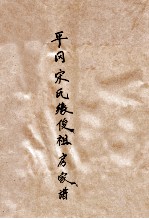 平冈宋氏缘俊祖房家谱